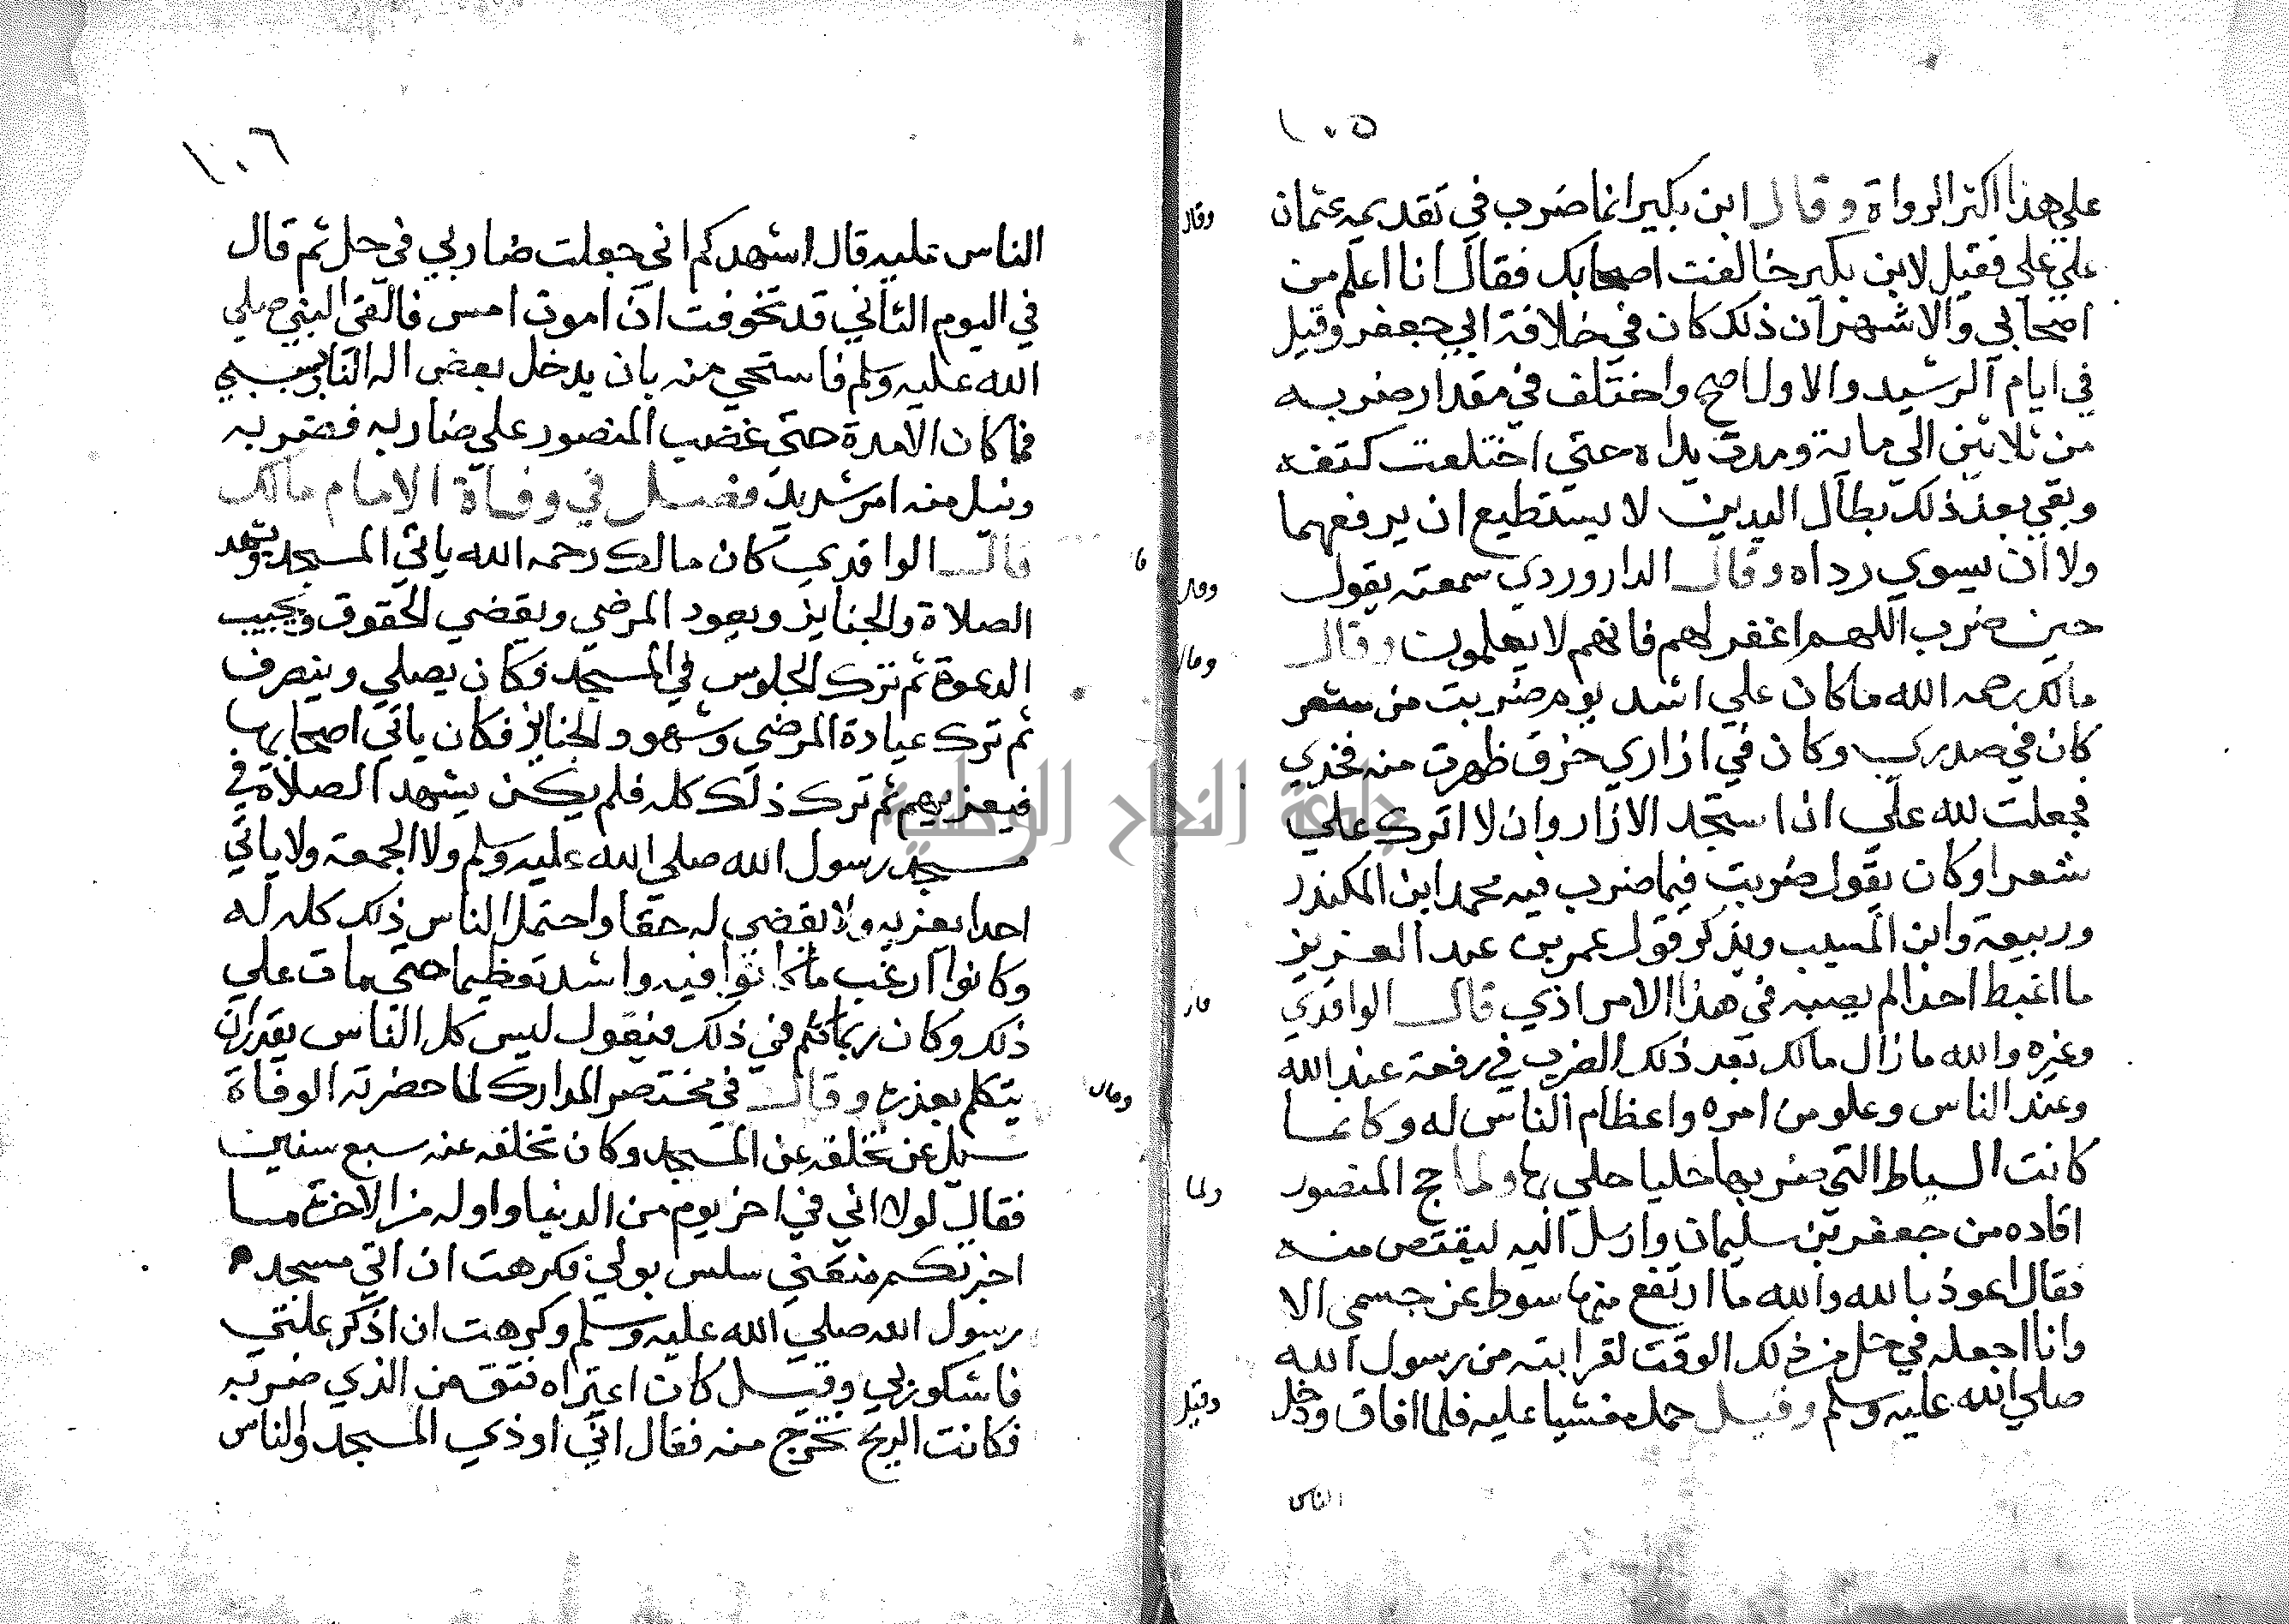 ١٠٥
علي هذا اكثر الرواة وقال ابن بكير انما ضرب في تقديمه عثمان
علي علي فقيل لابن بكير خالفت اصحابك فقال انا اعلم من
اصحابي والاشهر ان ذلك كان في خلافة ابي جعفر وقيل
في ايام الرشيد والاول اصح واختلف في مقدار ضربه
من ثلاثين الي ماية ومدت يداه حتي اختلعت كتفه
وبقي بعد ذلك بطال اليدين لا يستطيع ان يرفعهما
ولا ان يسوي رداه وقال الداروردي سمعته يقول
حين ضرب اللهم اغفر لهم فانهم لا يعلمون وقال
مالك رحمه الله ما كان علي اشد يوم ضربت من شعر
كان في صدري وكان في ازاري خرق ظهرت منه فخذي
فجعلت لله علي اذا استجد الازار وان لا اترك علي
شعرا وكان يقول ضربت فيما ضرب فيه محمد ابن المكندر
وربيعة وابن المسيب ويذكر قول عمر بن عبد العزيز
ما اغبط احدا لم يصبه في هذا الامر اذي قال الواقدي
وغيره والله ما زال مالك بعد ذلك الضرب في رفعة عند الله
وعند الناس وعلو من امره واعظام الناس له وكانما
كانت السياط التي ضرب بها حليا حلي بها ولما حج المنصور
اقاده من جعفر بن سليمان وارسل اليه ليقتص منه
فقال اعوذ بالله والله ما ارتفع منها سوط عن جسمي الا
وانا اجعله في حل من ذلك الوقت لقرابته من رسول الله
صلي الله عليه وسلم وقيل حمل مغشيا عليه فلما افاق ودخل
الناس
وقال
وقال
وقال
قال
ولما
وقيل
١٠٦
الناس عليه قال اشهدكم اني جعلت ضاربي في حل ثم قال
في اليوم الثاني قد تخوفت ان اموت امس فالقي النبي صلي
الله عليه وسلم فاستحي منه بان يدخل بعض اله النار بسببي
فما كان الا مدة حتي غضب المنصور علي ضاربه فضربه
ونيل منه امر شديد فصل في وفاة الامام مالك
قال الواقدي كان مالك رحمه الله ياتي المسجد ويشهد
الصلاة والجنايز ويعود المرضي ويقضي الحقوق ويجيب
الدعوة ثم ترك الجلوس في المسجد فكان يصلي وينصرف
ثم ترك عيادة المرضي وشهود الجنايز فكان ياتي اصحابها
فيعزيهم ثم ترك ذلك كله فلم يكن يشهد الصلاة في
مسجد رسول الله صلي الله عليه وسلم ولا الجمعة ولا ياتي
احدا يعزيه ولا يقضي له حقا واحتمل الناس ذلك كله له
وكانوا ارغب ما كانوا فيه واشد تعظيما حتي مات علي
ذلك وكان ربما كلم في ذلك فيقول ليس كل الناس يقدر ان
يتكلم بعذره وقال في مختصر المدارك لما حضرته الوفاة
سيل عن تخلفه عن المسجد وكان تخلفه عنه سبع سنين
فقال لولا اني في اخر يوم من الدنيا واوله من الاخرة ما
اخبرتكم منعني سلس بولي فكرهت ان اتي مسجد
رسول الله صلي الله عليه وسلم وكرهت ان اذكر علتي
فاشكو ربي وقيل كان اعتراه فتق من الذي ضربه
فكانت الريح تخرج منه فقال اني اوذي المسجد والناس
قا
وقال
جامعة النجاح الوطنية